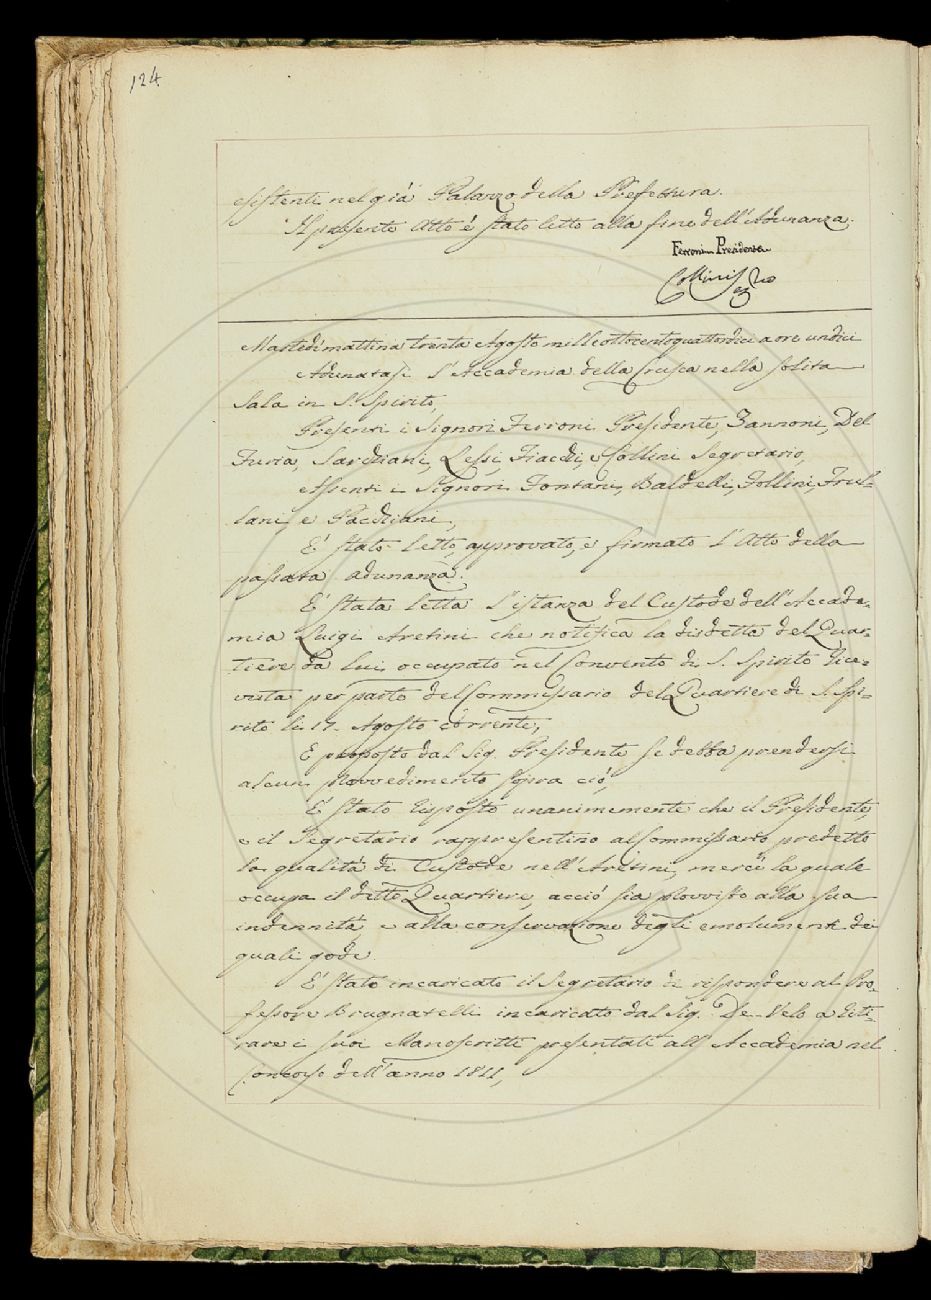 124
esistente nel già Palazzo della Prefettura.
Il presente Atto è stato letto alla fine dell'Adunanza.
Ferroni Presidente
Collini Seg.rio
Martedì mattina trenta Agosto milleottocentoquattordici a ore undici
Adunatasi l'Accademia della Crusca nella solita
Sala in S. Spirito,
Presenti i Signori Ferroni Presidente, Zannoni, Del
Furia, Sarchiani, Lessi, Fiacchi, e Collini Segretario,
Assenti i Signori Fontani, Baldelli, Follini, Frul=
lani, e Pacchiani,
E' stato letto, approvato, e firmato l'Atto della
passata adunanza.
E' stata letta l'istanza del Custode dell'Accade=
mia Luigi Aretini che notifica la disdetta del Quar=
tiere da lui occupato nel Convento di S. Spirito rice=
vuta per parte del Commissario del Quartiere di S. Spi=
rito li 17. Agosto corrente,
E proposto dal Sig. Presidente se debba prendersi
alcun provvedimento sopra ciò,
E' stato risposto unanimemente che il Presidente,
e il Segretario rappresentino al Commissario predetto
la qualità di Custode nell'Aretini, mercè la quale
occupa il detto Quartiere, acciò sia provvisto alla sua
indennità e alla conservazione degli emolumenti dei
quali gode.
E' stato incaricato il Segretario di rispondere al Pro=
fessore Brugnatelli incaricato dal Sig. De-Velo a riti=
rare i suoi Manoscritti presentati all'Accademia nel
Concorso dell'anno 1811,